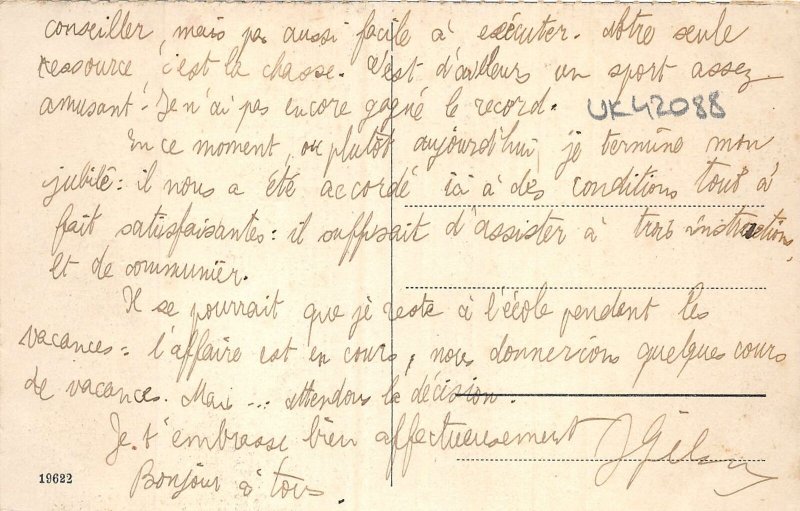 conseiller, mais pas aussi facile à exécuter. Notre seule
ressource c'est la chasse. C'est d'ailleurs un sport assez
amusant! Je n'ai pas encore gagné le record.
UK42088
En ce moment, ou plutôt aujourd'hui, je termine mon
jubilé: il nous a été accordé ici à des conditions tout à
fait satisfaisantes: il suffisait d'assister à trois instructions,
et de communier.
Il se pourrait que je reste à l'école pendant les
vacances: l'affaire est en cours, nous donnerions quelques cours
de vacances. Mais ... attendons la décision.
Je t'embrasse bien affectueusement
Bonjour à tous.
19622